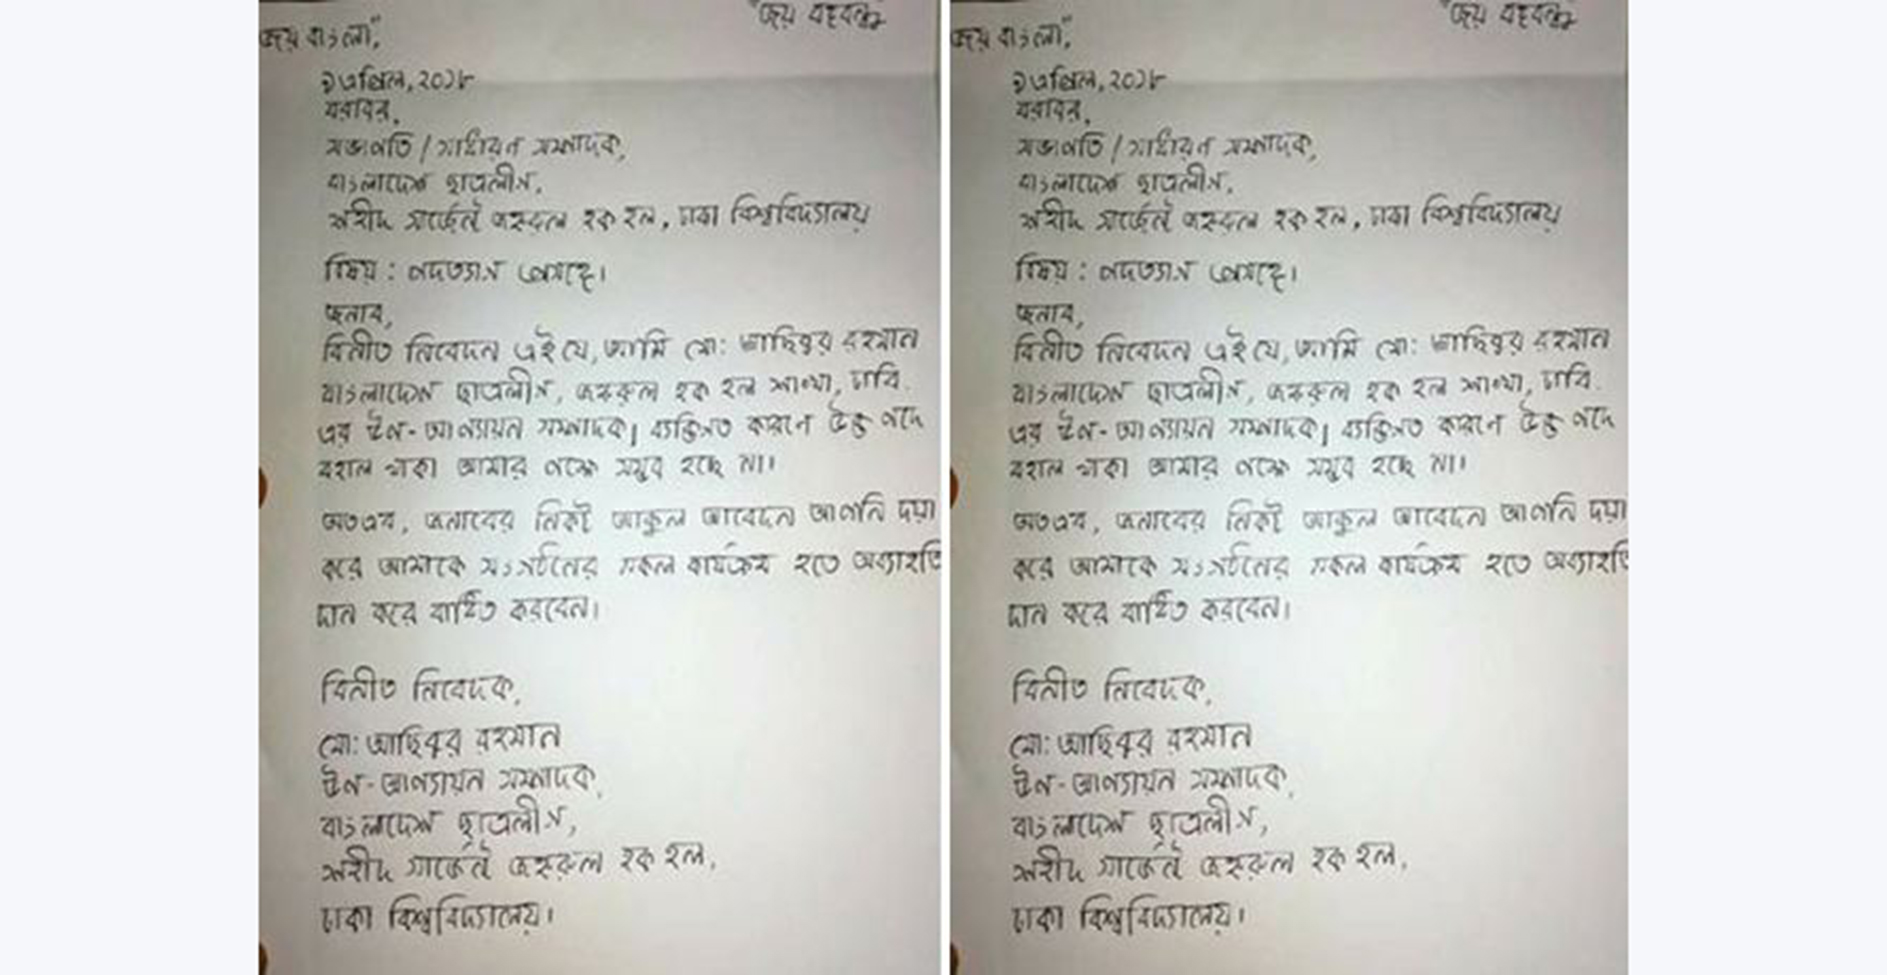 "জয় বাংলা," "জয় বঙ্গবন্ধু"
৯ এপ্রিল, ২০১৮
বরাবর,
সভাপতি / সাধারণ সম্পাদক,
বাংলাদেশ ছাত্রলীগ,
শহীদ সার্জেন্ট জহুরুল হক হল, ঢাকা বিশ্ববিদ্যালয়
বিষয় : পদত্যাগ প্রসঙ্গে।
জনাব,
বিনীত নিবেদন এই যে, আমি মো: আছিবুর রহমান
বাংলাদেশ ছাত্রলীগ, জহুরুল হক হল শাখা, ঢাবি.
এর উপ-আপ্যায়ন সম্পাদক। ব্যক্তিগত কারণে উক্ত পদে
বহাল থাকা আমার পক্ষে সম্ভব হচ্ছে না।
অতএব, জনাবের নিকট আকুল আবেদন আপনি দয়া
করে আমাকে সংগঠনের সকল কার্যক্রম হতে অব্যাহতি
দান করে বাধিত করবেন।
বিনীত নিবেদক,
মো: আছিবুর রহমান
উপ-আপ্যায়ন সম্পাদক,
বাংলাদেশ ছাত্রলীগ,
শহীদ সার্জেন্ট জহুরুল হক হল,
ঢাকা বিশ্ববিদ্যালয়।
"জয় বাংলা," "জয় বঙ্গবন্ধু"
৯ এপ্রিল, ২০১৮
বরাবর,
সভাপতি / সাধারণ সম্পাদক,
বাংলাদেশ ছাত্রলীগ,
শহীদ সার্জেন্ট জহুরুল হক হল, ঢাকা বিশ্ববিদ্যালয়
বিষয় : পদত্যাগ প্রসঙ্গে।
জনাব,
বিনীত নিবেদন এই যে, আমি মো: আছিবুর রহমান
বাংলাদেশ ছাত্রলীগ, জহুরুল হক হল শাখা, ঢাবি.
এর উপ-আপ্যায়ন সম্পাদক। ব্যক্তিগত কারণে উক্ত পদে
বহাল থাকা আমার পক্ষে সম্ভব হচ্ছে না।
অতএব, জনাবের নিকট আকুল আবেদন আপনি দয়া
করে আমাকে সংগঠনের সকল কার্যক্রম হতে অব্যাহতি
দান করে বাধিত করবেন।
বিনীত নিবেদক,
মো: আছিবুর রহমান
উপ-আপ্যায়ন সম্পাদক,
বাংলাদেশ ছাত্রলীগ,
শহীদ সার্জেন্ট জহুরুল হক হল,
ঢাকা বিশ্ববিদ্যালয়।